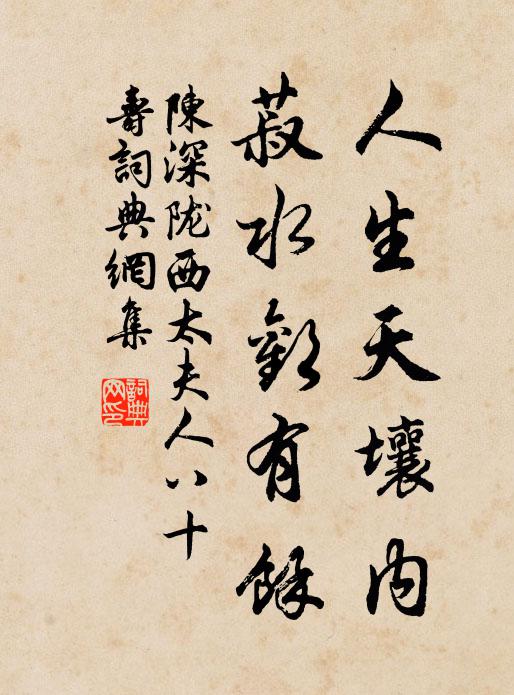 人生天壤内
菽水歡有餘
陳深陇西太夫人八十
壽詞典網集
詞典網印